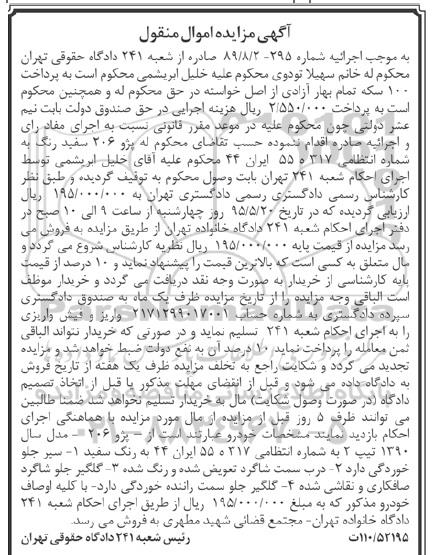 آگهی مزایده اموال منقول
به موجب اجرائیه شماره ۲۹۵- ۸۹/۸/۲ صادره از شعبه ۲۴۱ دادگاه حقوقی تهران
محکوم له خانم سهیلا تودوی محکوم علیه خلیل ابریشمی محکوم است به پرداخت
۱۰۰ سکه تمام بهار آزادی از اصل خواسته در حق محکوم له و همچنین محکوم
است به پرداخت ۲/۵۵۰/۰۰۰ ریال هزینه اجرایی در حق صندوق دولت بابت نیم
عشر دولتی چون محکوم علیه در موعد مقرر قانونی نسبت به اجرای مفاد رای
و اجرائیه صادره اقدام ننموده حسب تقاضای محکوم له پژو ۲۰۶ سفید رنگ به
شماره انتظامی ۳۱۷ ه ۵۵ ایران ۴۴ محکوم علیه آقای خلیل ابریشمی توسط
اجرای احکام شعبه ۲۴۱ تهران بابت وصول محکوم به توقیف گردیده و طبق نظر
کارشناس رسمی دادگستری رسمی دادگستری تهران به ۱۹۵/۰۰۰/۰۰۰ ریال
ارزیابی گردیده که در تاریخ ۹۵/۵/۲۰ روز چهارشنبه از ساعت ۹ الی ۱۰ صبح در
دفتر اجرای احکام شعبه ۲۴۱ دادگاه خانواده تهران از طریق مزایده به فروش می
رسد مزایده از قیمت پایه ۱۹۵/۰۰۰/۰۰۰ ریال نظریه کارشناس شروع می گردد و
مال متعلق به کسی است که بالاترین قیمت را پیشنهاد نماید و ۱۰ درصد از قیمت
پایه کارشناسی از خریدار به صورت وجه نقد دریافت می گردد و خریدار موظف
است الباقی وجه مزایده را از تاریخ مزایده ظرف یک ماه به صندوق دادگستری
سپرده دادگستری به شماره حساب ۲۱۷۱۲۹۹۰۱۷۰۰۱ واریز و فیش واریزی
را به اجرای احکام شعبه ۲۴۱ تسلیم نماید و در صورتی که خریدار نتواند الباقی
ثمن معامله را پرداخت نماید ۱۰ درصد آن به نفع دولت ضبط خواهد شد و مزایده
تجدید می گردد و شکایت راجع به تخلف مزایده ظرف یک هفته از تاریخ فروش
به دادگاه داده می شود و قبل از انقضای مهلت مذکور یا قبل از اتخاذ تصمیم
دادگاه (در صورت وصول شکایت) مال به خریدار تسلیم نخواهد شد ضمنا طالبین
می توانند ظرف ۵ روز قبل از مزایده از مال مورد مزایده با هماهنگی اجرای
احکام بازدید نمایند مشخصات خودرو عبارتند است از – پژو ۲۰۶ – مدل سال
۱۳۹۰ تیپ ۲ به شماره انتظامی ۳۱۷ ه ۵۵ ایران ۴۴ به رنگ سفید ۱- سپر جلو
خوردگی دارد ۲- درب سمت شاگرد تعویض شده و رنگ شده ۳- گلگیر جلو شاگرد
صافکاری و نقاشی شده ۴- گلگیر جلو سمت راننده خوردگی دارد- با کلیه اوصاف
خودرو مذکور که به مبلغ ۱۹۵/۰۰۰/۰۰۰ ریال از طریق اجرای احکام شعبه ۲۴۱
دادگاه خانواده تهران- مجتمع قضائی شهید مطهری به فروش می رسد.
۱۱۰/۵۲۱۹۵ت رئیس شعبه ۲۴۱ دادگاه حقوقی تهران